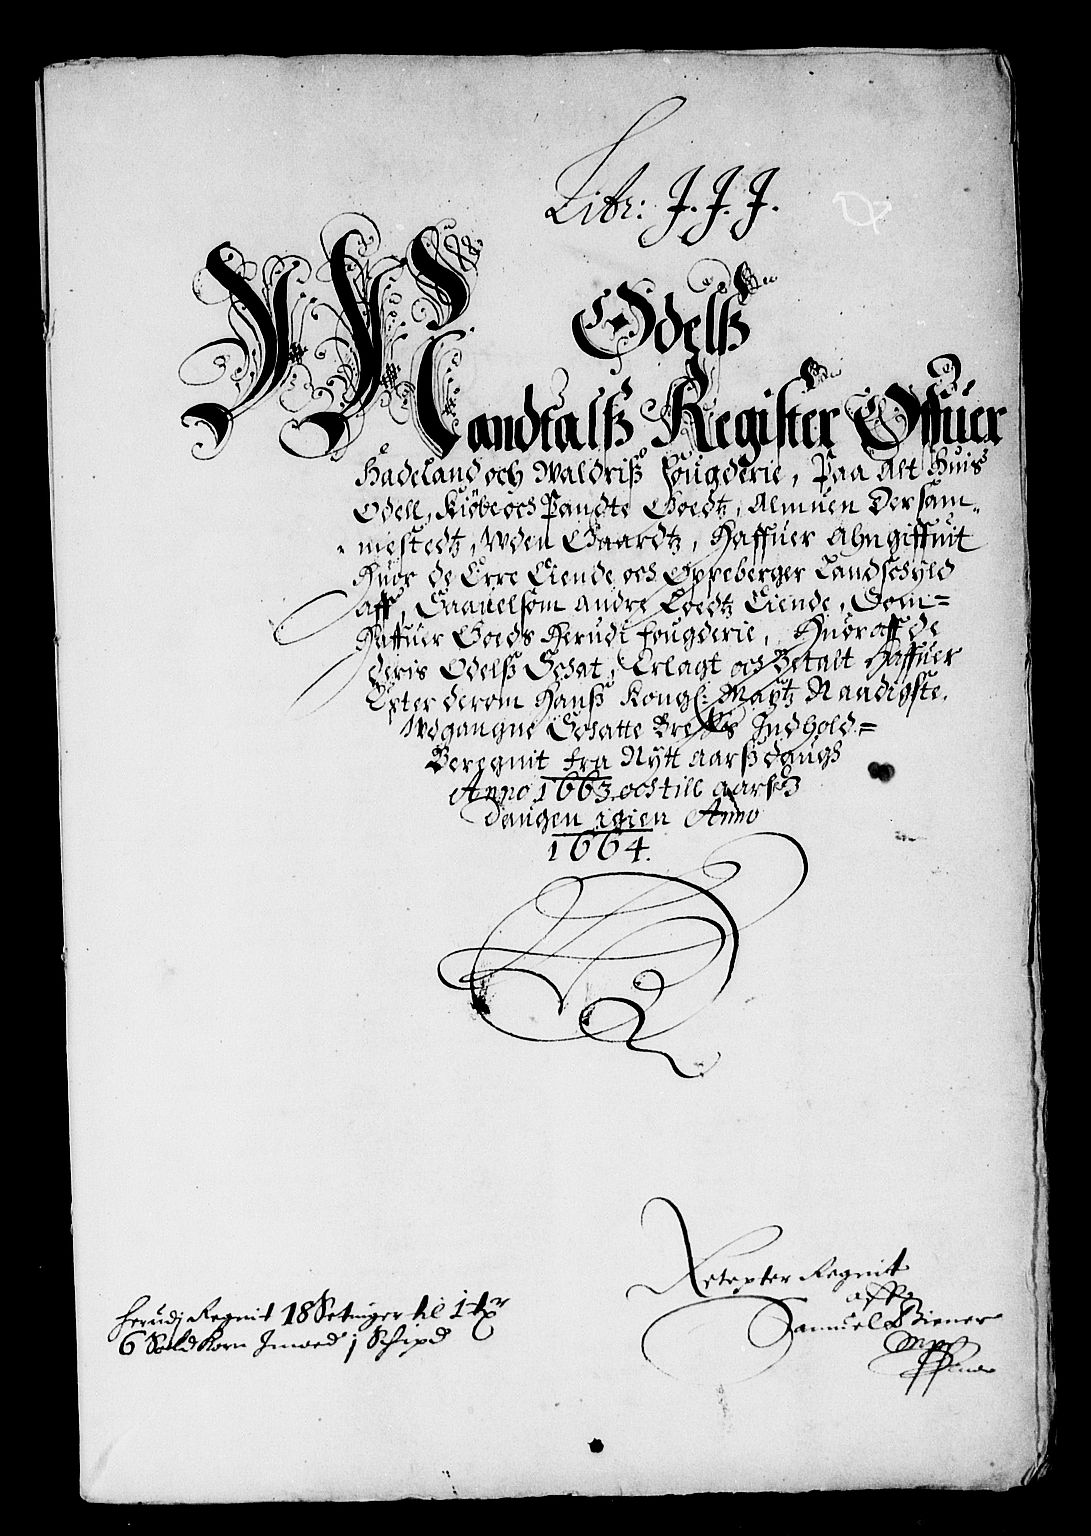 Litr: J. J. J.
Odelß
Mandtalß Register Offuer
Hadeland och Waldriß fougderie, Paa Alt Huis
Odell, Kiøbe och Pandte Goedtz, Almuen Dersam-
mestedtz, Uden Gaardtz, Haffuer Ahngiffuit
Huor de Erre Eiende och Oppeberger Landschyld
aff, Saauelsom Andre Loedtz Eiende, Som
Haffuer Goeds Herudi fougderie, Huoraff de
deris Odelß Schat, Erlagt och Betalt Haffuer
Epter derom Hanß Kongl: Maytz Naadigste,
Udgangne Schatte Breffs Indhold
Beregnit fra Nytt Aarß daugh
Anno 1663 och till Aarß
daugen igien Anno
1664.
Retepter Regnit
aff
Samuel Biener
Mpp
herudj Regnit 18 Setninger til 1 tr
6 Sold Korn Imoed 1 Schipd